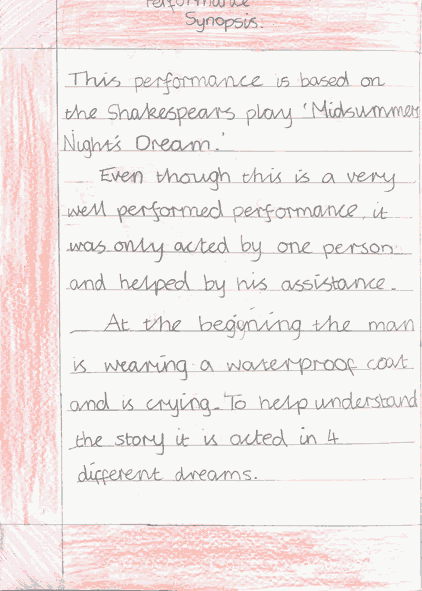 Performance
Synopsis.
This performance is based on
the Shakespears play 'Midsummer
Night's Dream.'
Even though this is a very
well performed performance, it
was only acted by one person
and helped by his assistance.
At the begining the man
is wearing a waterproof coat
and is crying. To help understand
the story it is acted in 4
different dreams.